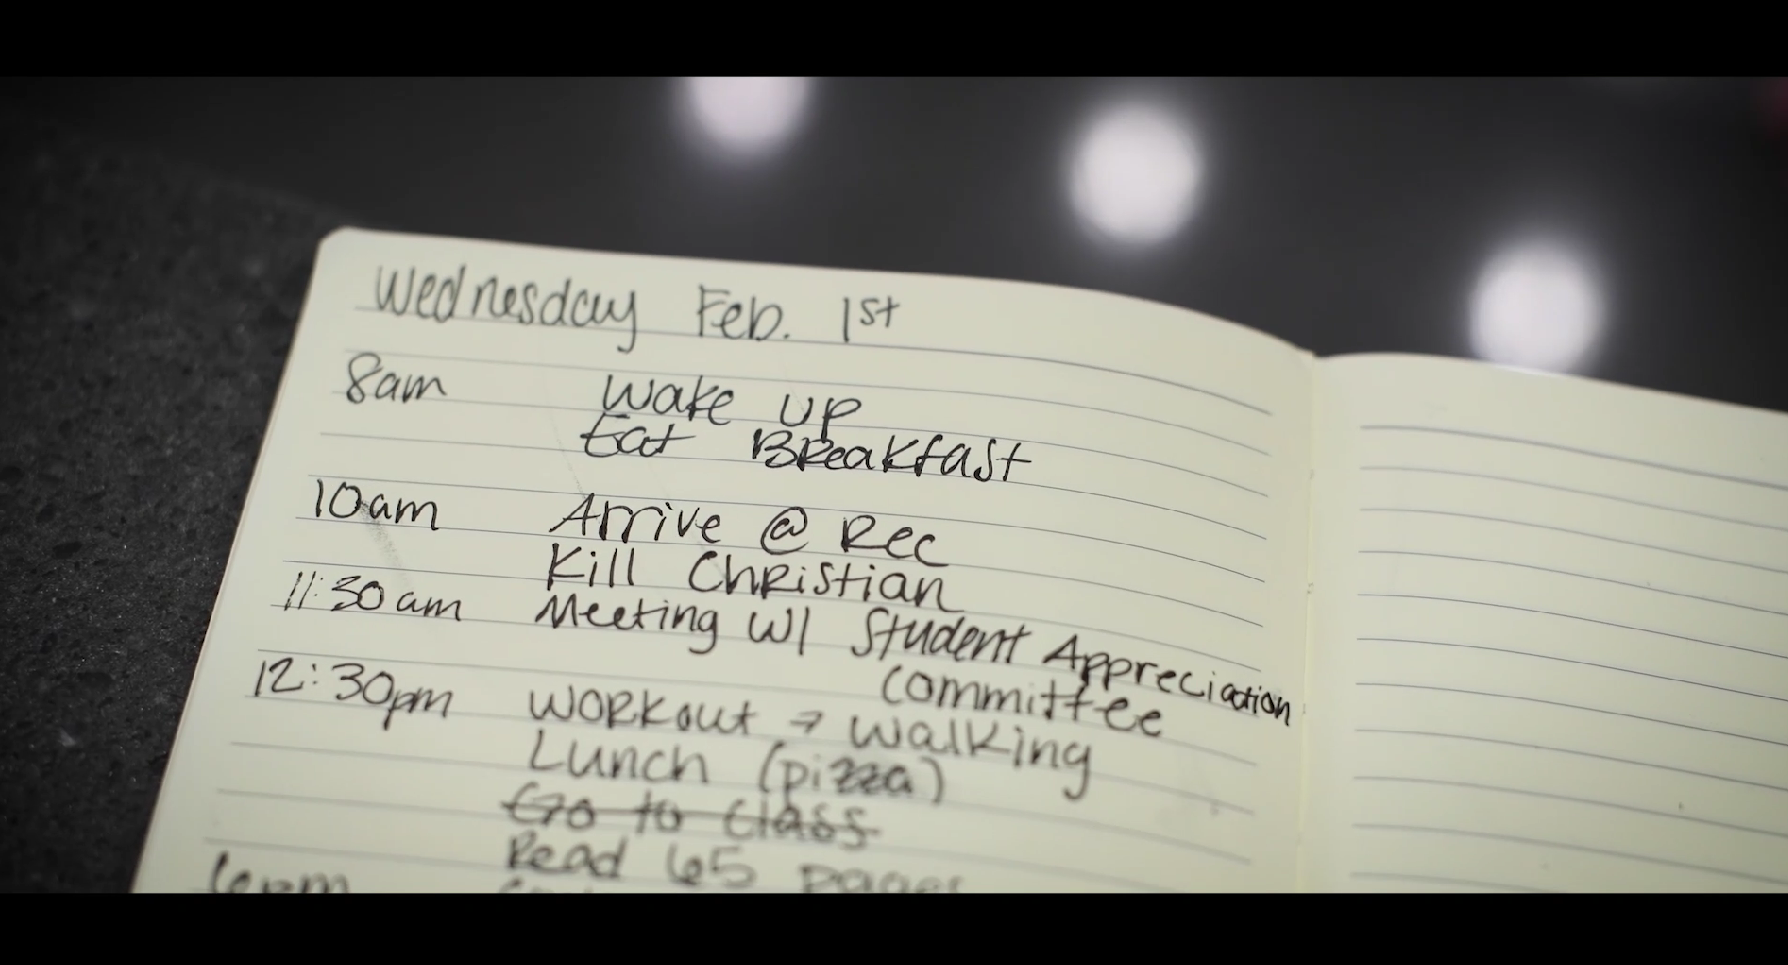 Wednesday Feb. 1st
8am Wake up
Eat Breakfast
10am Arrive @ Rec
Kill Christian
11:30am Meeting w/ Student Appreciation
committee
12:30pm Workout → Walking
Lunch (pizza)
Go to class
Read 65 pages
6pm